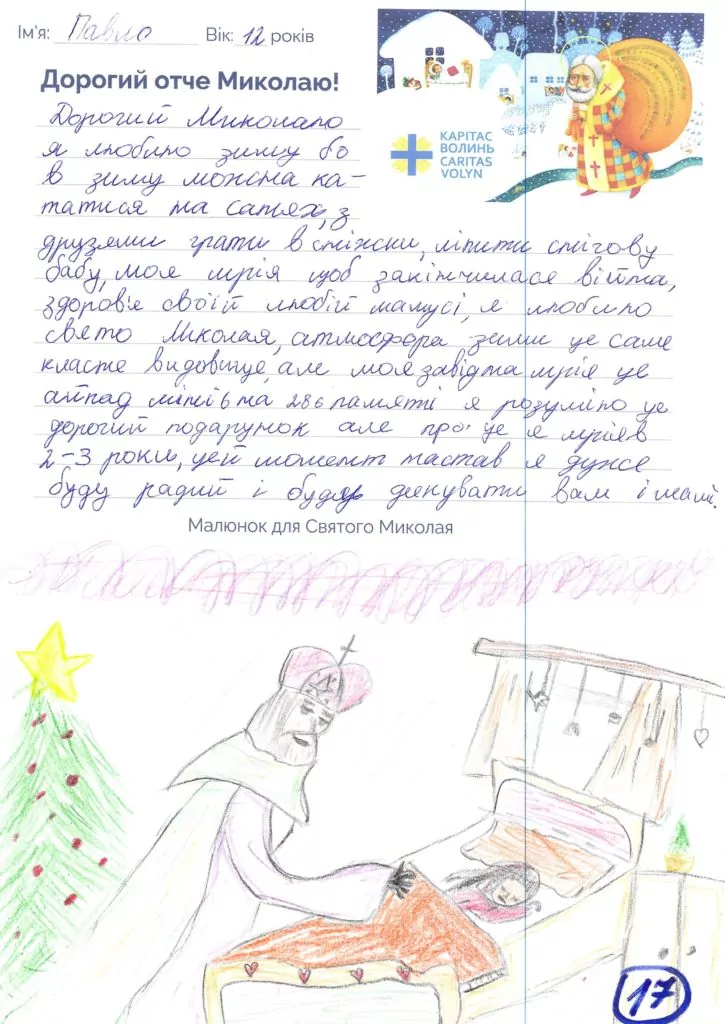 Ім'я: Павло Вік: 12 років
Дорогий отче Миколаю!
КАРІТАС
ВОЛИНЬ
CARITAS
VOLYN
Дорогий Миколаю
я люблю зиму бо
в зиму можна ка-
татися на санях, з
друзями грати в сніжки, ліпити снігову
бабу, моя мрія щоб закінчилася війна,
здоров'є своїй любій мамусі, я люблю
свято Миколая, атмосфора зими це саме
класне видовище, але моя завідна мрія це
айпад міні 6 на 286 памяті я розумію це
дорогий подарунок але про це я мріяв
2-3 роки, цей момент настав я дуже
буду радий і буду дякувати вам і мамі.
Малюнок для Святого Миколая
17